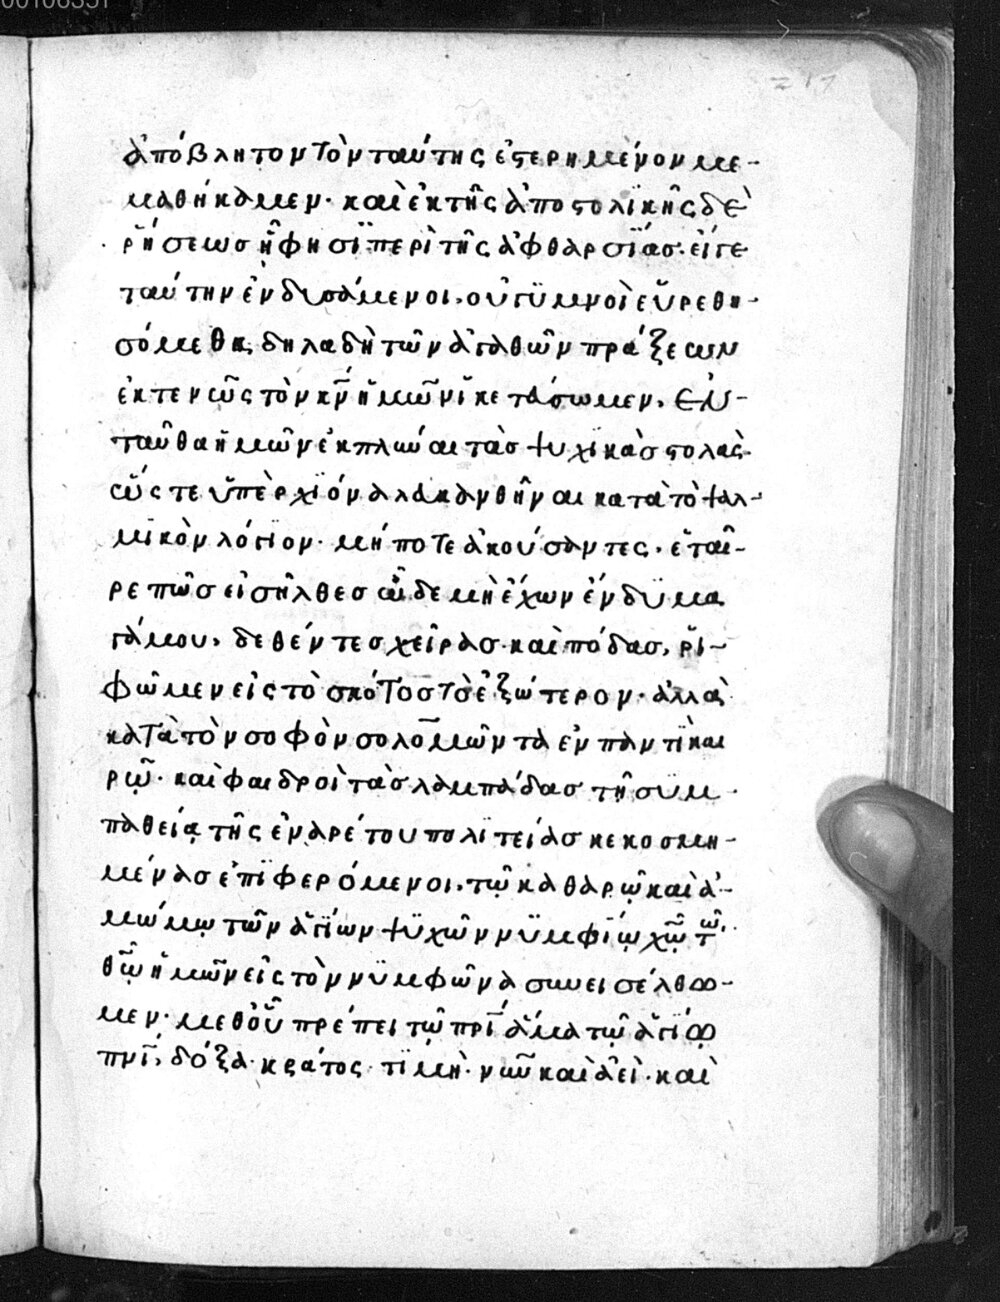 00106351
217
ἀπόβλητον τὸν ταύτης ἐστερημένον με-
μαθήκαμεν· καὶ ἐκ τῆς ἀποστολϊκῆς δὲ
ῥήσεως ἥ φησϊ περὶ τῆς ἀφθαρσΐας· εἴγε
ταύτην ἐνδυσάμενοι, οὐ γϋμνοὶ εὑρεθη-
σόμεθα, δηλαδὴ τῶν ἀγαθῶν πράξεων
ἐκτενῶς τὸν κ̅ν̅ ἡμῶν ἱκετεύσωμεν, ἐν-
ταῦθα ἡμῶν ἐκπλῦναι τὰσ ψυχϊκὰσ στολὰς
ὥς τε ὑπὲρ χϊόνα λαὐκανθῆναι κατὰ τὸ ψαλ-
μϊκὸν λόγϊον· μήποτε ἀκούσαντες· ἑταῖ-
ρε πῶσ εἰσῆλθεσ ὧδε μὴ ἔχων ἔνδϋμα
γάμου, δεθέντεσ χεῖρασ· καὶ πόδασ, ῥι-
φῶμεν εἰς τὸ σκότοσ τὸ ἐξώτερον· ἀλλὰ
κατὰ τὸν σοφὸν σολομῶντα ἐν παντϊ και
ρῷ· καὶ φαιδροὶ τὰσ λαμπάδασ τῇ συμ
παθείᾳ τῆς ἐναρέτου πολϊτείασ κεκοσμη-
μένασ ἐπϊφερόμενοι, τῷ καθαρῷ καὶ ἀ-
μώμῳ τῶν ἁγϊων ψϋχῶν νϋμφϊῳ χ̅ῷ̅ τῷ
θ̅ῷ̅ ἡμῶν εἰς τὸν νϋμφῶνα συνεισέλθω-
μεν· μεθ' οὗ πρέπει τῷ π̅ρ̅ϊ̅ ἅμα τῷ ἁγϊῳ
π̅ν̅ϊ̅, δόξα· κράτος· τϊμὴ· νῦν καὶ ἀεὶ· καὶ